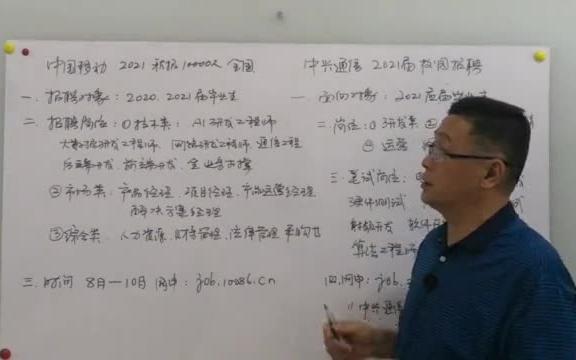 中国移动 2021 秋招 10000人 全国
一. 招聘对象：2020、2021届毕业生
二. 招聘岗位：①技术类：AI研发工程师
大数据研发工程师 网络研发工程师 通信工程
后端开发、前端开发、
②市场类：产品经理、项目经理、产品运营经理
解决方案经理
③综合类、人力资源、财务管理、法律管理
三. 时间 8月—10月 网申：job.10086.cn
中兴通信 2021届校园招聘
一. 面向对象：2021应届毕业生
二. 岗位：①研发类 ②
④运营
三. 笔试岗位：
硬件测试
射频开发 软件开
算法工程师
四. 网申：job.
1) 中兴通信